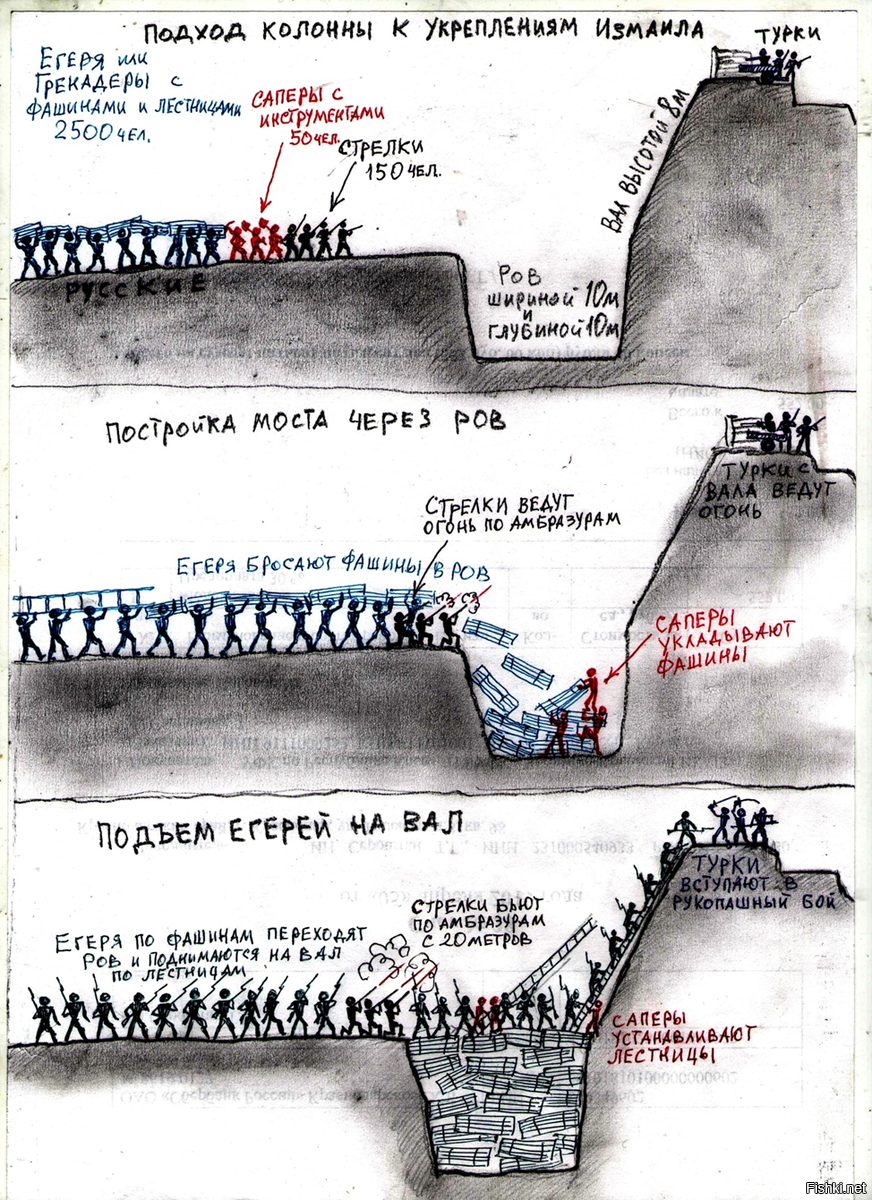 ПОДХОД КОЛОННЫ К УКРЕПЛЕНИЯМ ИЗМАИЛА
ТУРКИ
ЕГЕРЯ ИЛИ
ГРЕНАДЕРЫ С
ФАШИНАМИ И ЛЕСТНИЦАМИ
2500 ЧЕЛ.
САПЕРЫ С
ИНСТРУМЕНТАМИ
50 ЧЕЛ.
СТРЕЛКИ
150 ЧЕЛ.
ВАЛ ВЫСОТОЙ 8м
РУССКИЕ
РОВ
ШИРИНОЙ 10м
И
ГЛУБИНОЙ 10м
ПОСТРОЙКА МОСТА ЧЕРЕЗ РОВ
ТУРКИ С
ВАЛА ВЕДУТ
ОГОНЬ
СТРЕЛКИ ВЕДУТ
ОГОНЬ ПО АМБРАЗУРАМ
ЕГЕРЯ БРОСАЮТ ФАШИНЫ В РОВ
САПЕРЫ
УКЛАДЫВАЮТ
ФАШИНЫ
ПОДЪЕМ ЕГЕРЕЙ НА ВАЛ
ТУРКИ
ВСТУПАЮТ В
РУКОПАШНЫЙ БОЙ
СТРЕЛКИ БЬЮТ
ПО АМБРАЗУРАМ
С 20 МЕТРОВ
ЕГЕРЯ ПО ФАШИНАМ ПЕРЕХОДЯТ
РОВ И ПОДНИМАЮТСЯ НА ВАЛ
ПО ЛЕСТНИЦАМ
САПЕРЫ
УСТАНАВЛИВАЮТ
ЛЕСТНИЦЫ
Fishki.net